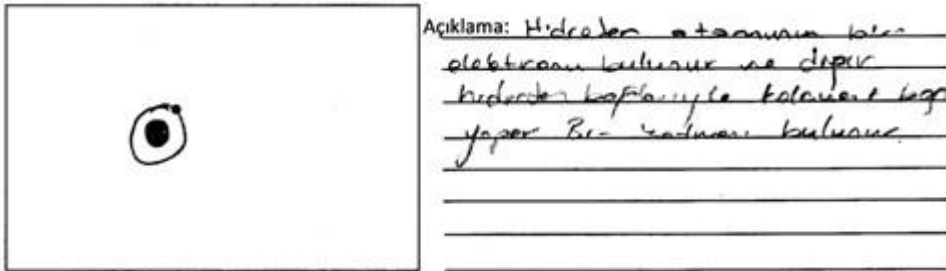 Açıklama: Hidrojen atomunun bir
elektronu bulunur ve diğer
hidrojen bağlarıyla kovalent bağ
yapar Bir katmanı bulunur